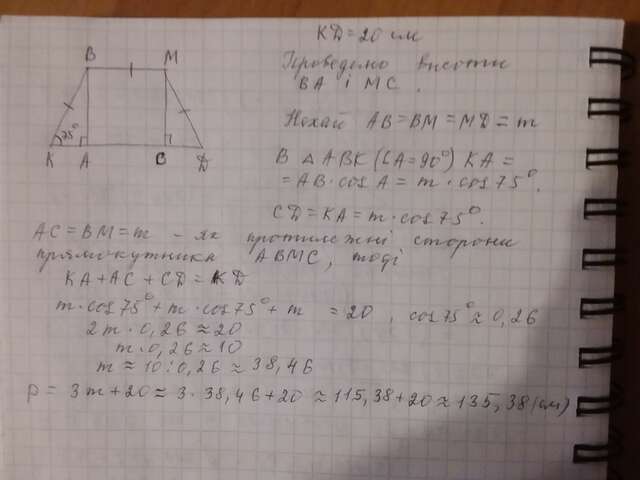 KD=20 см
Проведемо висоти
BA і MC.
Нехай AB=BM=MD=m
В △ ABK (∠A=90°) KA=
=AB·cos A=m·cos75°.
CD=KA=m·cos75°.
B M
75°
K A C D
AC=BM=m - як протилежні сторони
прямокутника ABMC, тоді
KA+AC+CD=KD
m·cos75°+m·cos75°+m =20, cos75°≈0,26
2m·0,26≈20
m·0,26≈10
m≈10:0,26≈38,46
p=3m+20≈3·38,46+20≈115,38+20≈135,38(см)